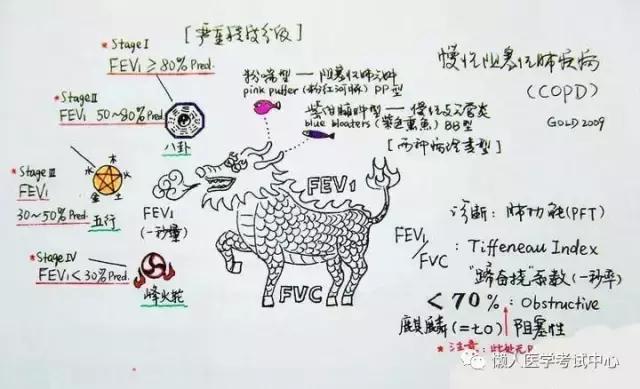 [严重程度分级]
*Stage I
FEV₁ ≥ 80% Pred.
八卦
*Stage II
FEV₁ 50~80% Pred.
*Stage III
FEV₁
30~50% Pred.
木
水 火
金 土
五行
*Stage IV
FEV₁ < 30% Pred.
烽火轮
FEV₁
(一秒量)
粉喘型 — 阻塞性肺气肿
pink puffer (粉红河豚) PP型
紫绀臃肿型 — 慢性支气管炎
blue bloaters (紫色熏鱼) BB型
[两种病理类型]
FEV₁
FVC
慢性阻塞性肺疾病
(COPD)
GOLD 2009
诊断: 肺功能(PFT)
FEV₁/FVC : Tiffeneau Index
系数(一秒率)
<70% : Obstructive
麒麟(=70) 阻塞性
*注意: 此处无P
懒人医学考试中心